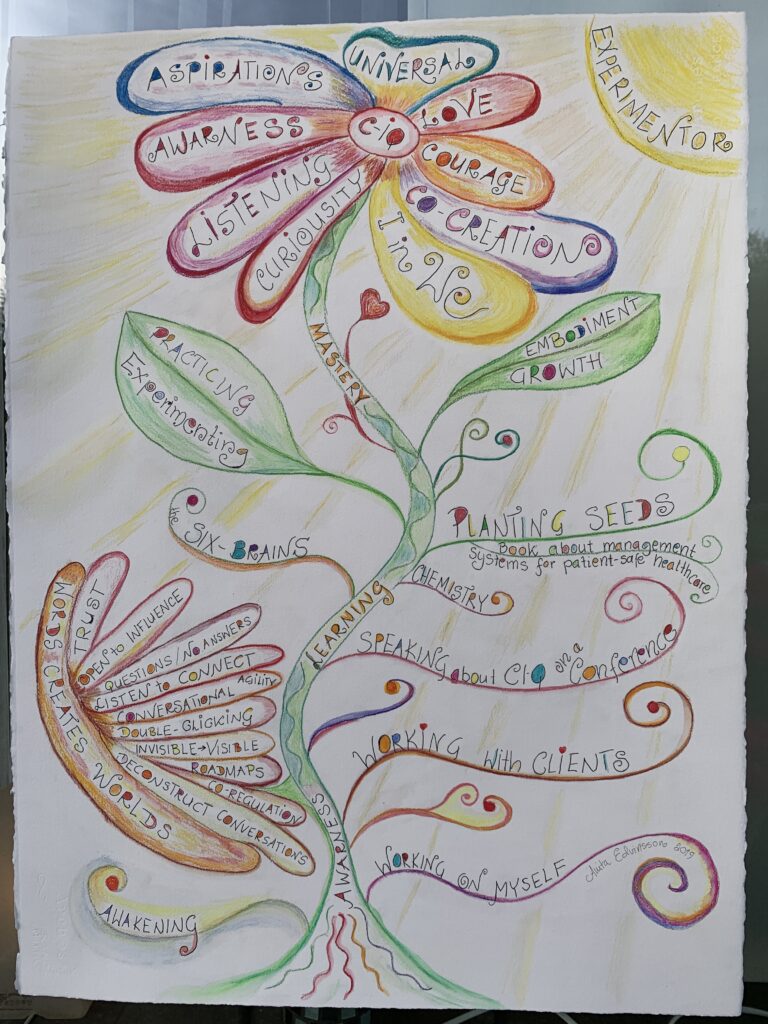 ASPIRATIONS
UNIVERSAL
LOVE
AWARNESS
C-IQ
COURAGE
LISTENING
CURIOUSITY
CO-CREATION
I in WE
EXPERIMENTOR
MASTERY
EMBODIMENT
GROWTH
PRACTICING
Experimenting
the SIX-BRAINS
PLANTING SEEDS
Book about management
systems for patient-safe healthcare
CHEMISTRY
LEARNING
SPEAKING about CI-Q on a Conference
WORDS CREATES WORLDS
TRUST
OPEN to INFLUENCE
QUESTIONS/NO ANSWERS
LISTEN to CONNECT
CONVERSATIONAL AGILITY
DOUBLE-CLICKING
INVISIBLE→VISIBLE
ROADMAPS
CO-REGULATION
DECONSTRUCT CONVERSATIONS
WORKING with CLIENTS
AWARNESS
WORKING ON MYSELF
2019
AWAKENING